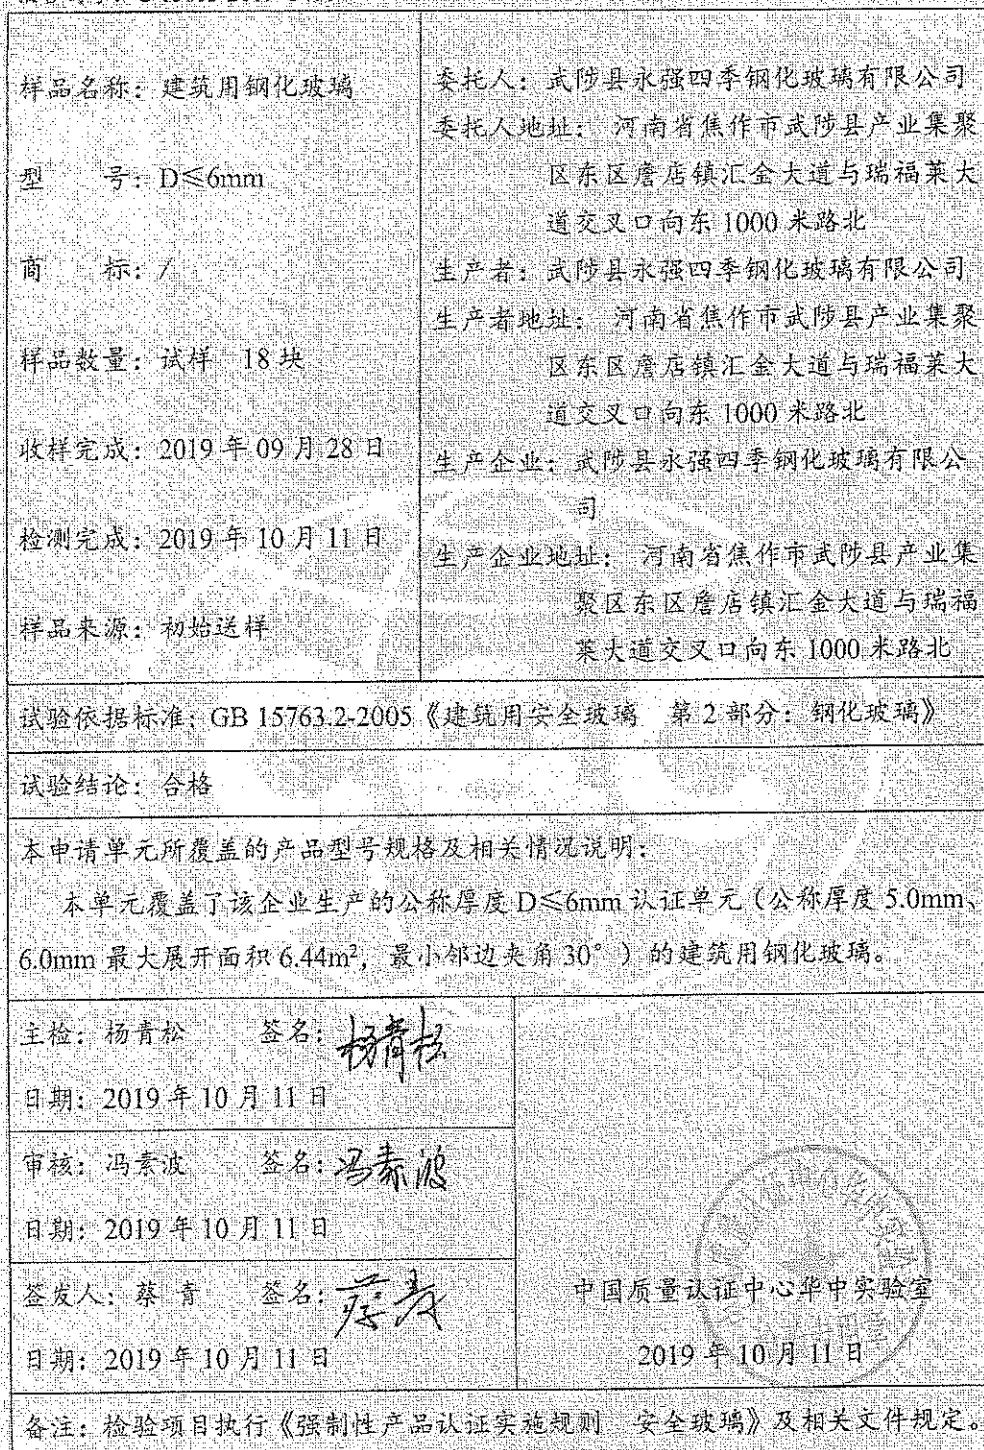 样品名称：建筑用钢化玻璃
型　　号：D≤6mm
商　　标：/
样品数量：试样　18 块
收样完成：2019 年 09 月 28 日
检测完成：2019 年 10 月 11 日
样品来源：初始送样
委托人：武陟县永强四季钢化玻璃有限公司
委托人地址：　河南省焦作市武陟县产业集聚
区东区詹店镇汇金大道与瑞福莱大
道交叉口向东 1000 米路北
生产者：武陟县永强四季钢化玻璃有限公司
生产者地址：　河南省焦作市武陟县产业集聚
区东区詹店镇汇金大道与瑞福莱大
道交叉口向东 1000 米路北
生产企业：武陟县永强四季钢化玻璃有限公
司
生产企业地址：　河南省焦作市武陟县产业集
聚区东区詹店镇汇金大道与瑞福
莱大道交叉口向东 1000 米路北
试验依据标准：GB 15763.2-2005《建筑用安全玻璃　第 2 部分：钢化玻璃》
试验结论：合格
本申请单元所覆盖的产品型号规格及相关情况说明：
本单元覆盖了该企业生产的公称厚度 D≤6mm 认证单元（公称厚度 5.0mm、
6.0mm 最大展开面积 6.44m²，最小邻边夹角 30°）的建筑用钢化玻璃。
主检：杨青松　　签名：杨青松
日期：2019 年 10 月 11 日
审核：冯素波　　签名：冯素波
日期：2019 年 10 月 11 日
签发人：蔡 青　　签名：蔡青
日期：2019 年 10 月 11 日
中国质量认证中心华中实验室
2019 年 10 月 11 日
备注：检验项目执行《强制性产品认证实施规则　安全玻璃》及相关文件规定。